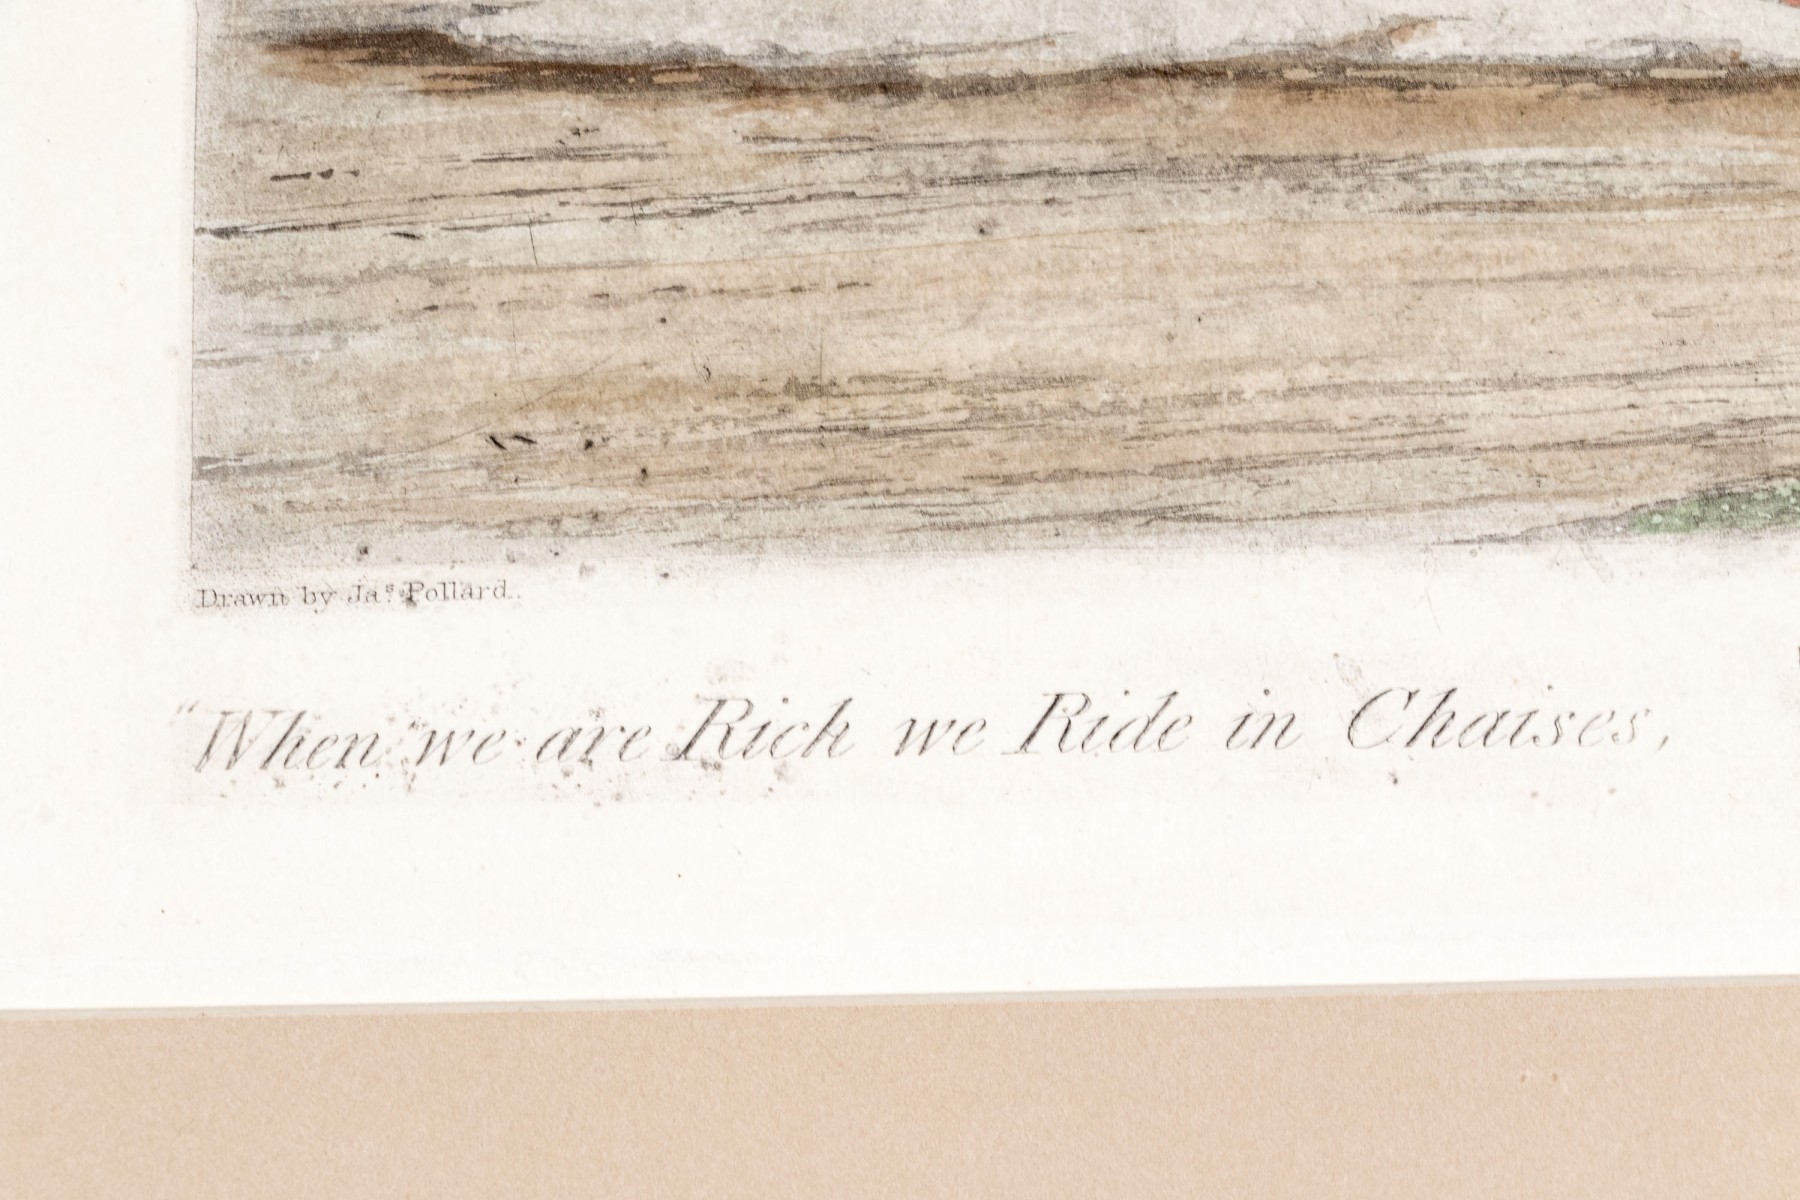 Drawn by Jaˢ. Pollard.
"When we are Rich we Ride in Chaises,